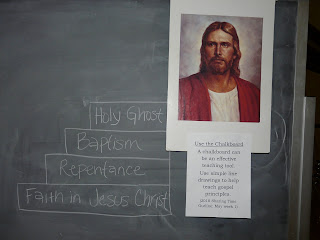 Holy Ghost
Baptism
Repentance
Faith in Jesus Christ
Use the Chalkboard
A chalkboard can
be an effective
teaching tool.
Use simple line
drawings to help
teach gospel
principles.
2010 Sharing Time
Outline, May week 1)